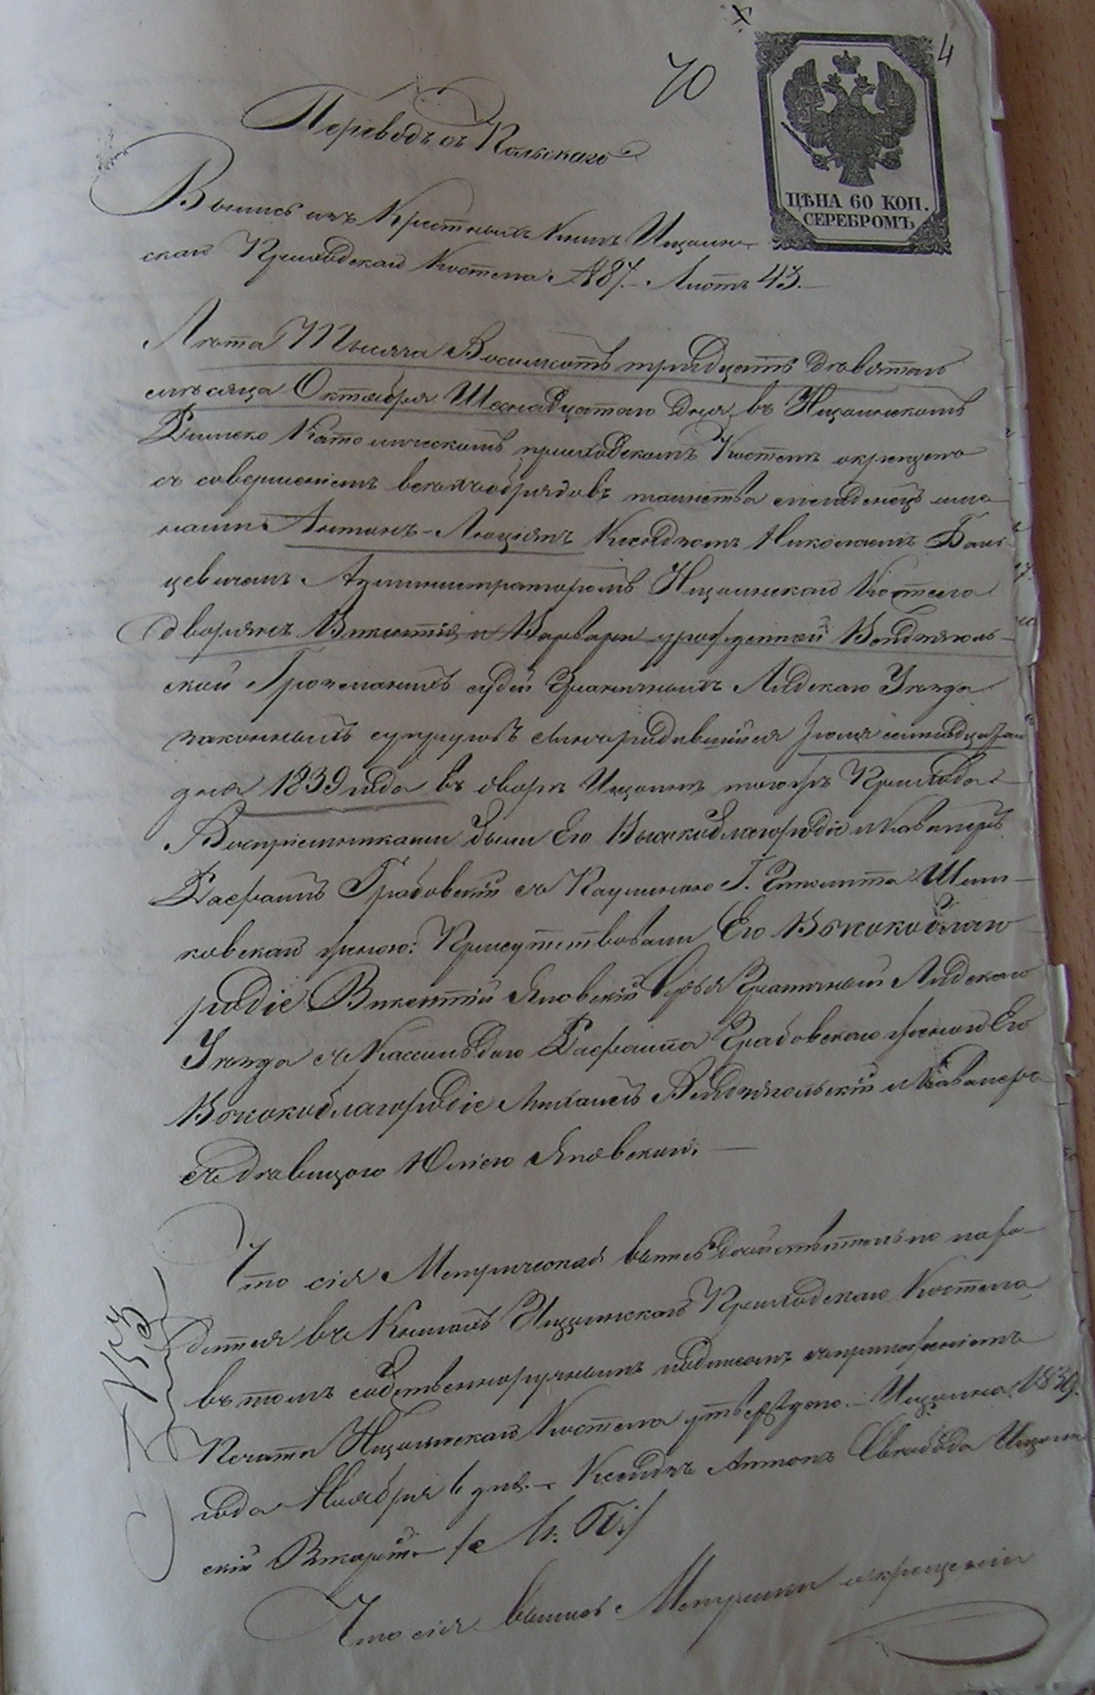 70
4
ЦѢНА 60 КОП.
СЕРЕБРОМЪ.
Переводъ съ Польскаго
Выпись изъ Крестныхъ Книгъ Ищолн-
скаго Приходскаго Костела № 87. Листъ 43.
Лѣта Тысяча Восемсотъ тридцать девятаго
мѣсяца Октября Шеснадцатаго дня, въ Ищолнскомъ
Римско Католическомъ приходскомъ Костелѣ окрещенъ
съ совершеніемъ всѣхъ обрядовъ таинства младенецъ име-
нами Антонъ-Люціянъ Ксендзомъ Николаемъ
цевичемъ Администраторомъ Ищолнскаго Костела
дворянъ Викентія и Варвары урожденной Вендзяголь-
ской судей Граничныхъ Лидскаго Уѣзда
законныхъ супруговъ сынъ родившійся Іюля семнадцатаго
дня 1839 года въ дворѣ Ищолнѣ того жъ Прихода
Воспріемниками были Его Высокоблагородіе и Кавалеръ
Грабовскій съ Паулиною Г. Шим-
ковскаго женою: Присутствовали Его Высокоблаго-
родіе Викентій Яновскій Судья Граничный Лидскаго
Уѣзда съ Грабовскаго женою Его
Высокоблагородіе Михаилъ Вендзягольскій и Кавалеръ
съ дѣвицею Юліею Яновскою.
Что сія Метрическая выпись дѣйствительно нахо-
дится въ Книгахъ Ищолнскаго Приходскаго Костела
въ томъ собственноручнымъ подписомъ съ приложеніемъ
Печати Ищолнскаго Костела утверждаю. Ищолна 1839.
года Ноября 6 дня. Ксендзъ Антонъ Свобода Ищолн-
скій Викарій / М. П. /
Что сія выпись Метрики о крещеніи